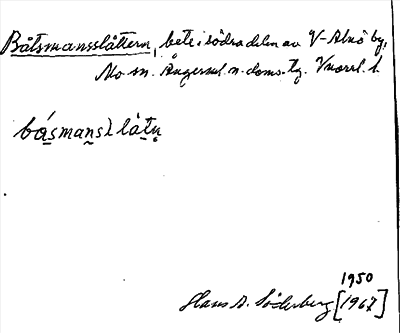 Båtsmansslåttern, bete i södra delen av V-Alnö by,
Mo sn. Ångerml. n. doms. tg. Vnorrl. l.
básmansl låtn
1950
Hans A. Söderberg [1967]